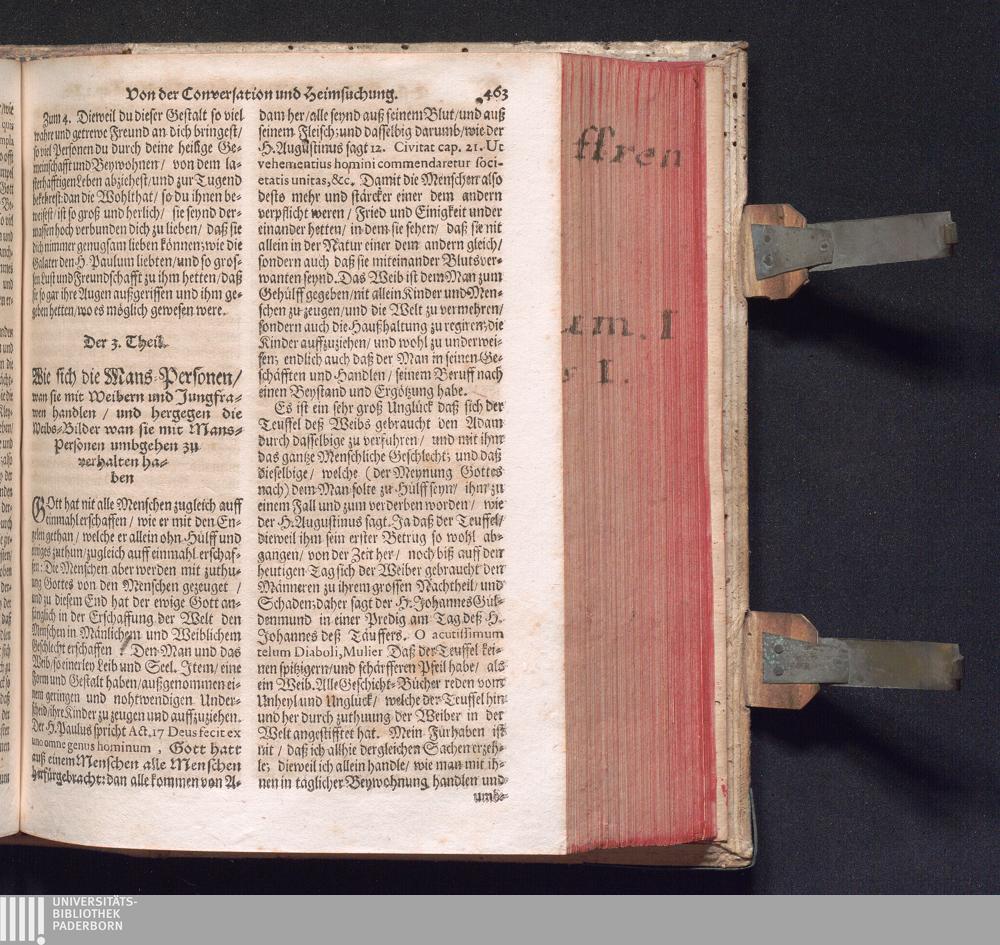 Von der Conversation und Heimsuchung. 463
Zum 4. Dieweil du dieser Gestalt so viel
wahre und getrewe Freund an dich bringest/
so viel Personen du durch deine heilige Ge-
meinschafft und Beywohnen / von dem la-
sterhafftigen Leben abziehest/ und zur Tugend
bekehrest: dan die Wohlthat/ so du ihnen be-
weisest/ ist so groß und herlich/ sie seynd der-
massen hoch verbunden dich zu lieben/ daß sie
dich nimmer genugsam lieben können; wie die
Galater den H. Paulum liebten/ und so gros-
sen Lust und Freundschafft zu ihm hetten/ daß
sie so gar ihre Augen außgeriffen und ihm ge-
geben hetten/ wo es möglich gewesen were.
Der 3. Theil.
Wie sich die Mans-Personen/
wan sie mit Weibern und Jungfra-
wen handlen / und hergegen die
Weibs-Bilder wan sie mit Mans-
Personen umbgehen zu
verhalten ha-
ben
GOtt hat nit alle Menschen zugleich auff
einmahl erschaffen / wie er mit den En-
gelen gethan / welche er allein ohn Hülff und
einiges zuthun/ zugleich auff einmahl erschaf-
fen: Die Menschen aber werden mit zuthu-
ung Gottes von den Menschen gezeuget /
und zu diesem End hat der ewige Gott an-
fänglich in der Erschaffung der Welt den
Menschen in Mänlichem und Weiblichem
Geschlecht erschaffen / Den Man und das
Weib/ so einerley Leib und Seel. Item/ eine
Form und Gestalt haben/ außgenommen ei-
nem geringen und nohtwendigen Under-
scheid/ ihre Kinder zu zeugen und auffzuziehen.
Der H. Paulus spricht Act. 17 Deus fecit ex
uno omne genus hominum, Gott hatt
auß einem Menschen alle Menschen
herfürgebracht: dan alle kommen von A-
dam her/ alle seynd auß seinem Blut/ und auß
seinem Fleisch; und dasselbig darumb/ wie der
H. Augustinus sagt 12. Civitat cap. 21. Ut
vehementius homini commendaretur soci-
etatis unitas, &c. Damit die Menschen also
desto mehr und stärcker einer dem andern
verpflicht weren / Fried und Einigkeit under
einander hetten / in dem sie sehen / daß sie nit
allein in der Natur einer dem andern gleich/
sondern auch daß sie miteinander Blutsver-
wanten seynd. Das Weib ist dem Man zum
Gehülff gegeben/ nit allein Kinder und Men-
schen zu zeugen/ und die Welt zu vermehren/
sondern auch die Haußhaltung zu regiren; die
Kinder auffzuziehen/ und wohl zu underwei-
sen; endlich auch daß der Man in seinen Ge-
schäfften und Handlen / seinem Beruff nach
einen Beystand und Ergötzung habe.
Es ist ein sehr groß Unglück daß sich der
Teuffel deß Weibs gebraucht den Adam
durch dasselbige zu verführen / und mit ihm
das gantze Menschliche Geschlecht; und daß
dieselbige/ welche (der Meynung Gottes
nach) dem Man solte zu Hülff seyn/ ihm zu
einem Fall und zum verderben worden/ wie
der H. Augustinus sagt. Ja daß der Teuffel/
dieweil ihm sein erster Betrug so wohl ab-
gangen/ von der Zeit her/ noch biß auff den
heutigen Tag sich der Weiber gebraucht den
Männeren zu ihrem grossen Nachtheil/ und
Schaden: daher sagt der H. Johannes Gül-
denmund in einer Predig am Tag deß H.
Johannes deß Täuffers. O acutissimum
telum Diaboli, Mulier Daß der Teuffel kei-
nen spitzigern/ und schärfferen Pfeil habe/ als
ein Weib. Alle Geschicht-Bücher reden vom
Unheyl und Unglück/ welche der Teuffel hin
und her durch zuthuung der Weiber in der
Welt angestifftet hat. Mein Fürhaben ist
nit / daß ich allhie dergleichen Sachen erzeh-
le; dieweil ich allein handle/ wie man mit ih-
nen in täglicher Beywohnung handlen und
umb-
ffren
um. I
I.
UNIVERSITÄTS-
BIBLIOTHEK
PADERBORN